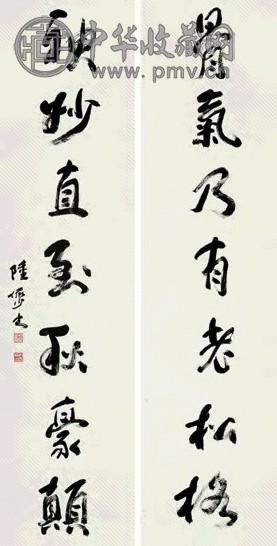 中华收藏网
www.pmv.cn
骨氣乃有老松格
妙直到秋豪顛
陸儼少